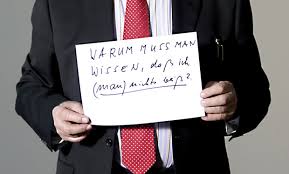 WARUM MUSS MAN
WISSEN, daß ich
(man) nichts weiß?